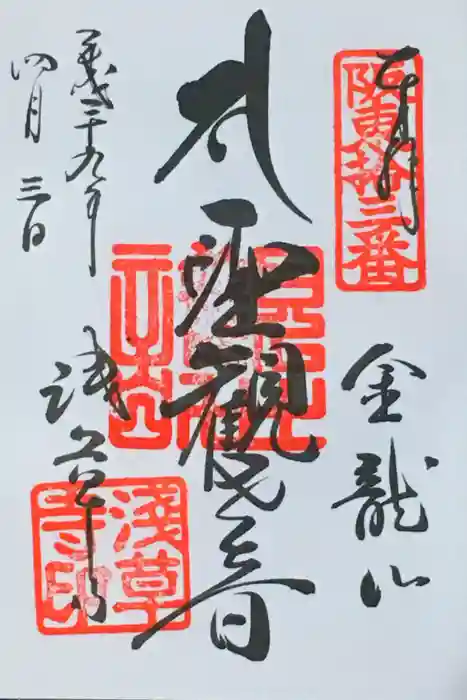 奉拝
坂東拾三番
金龍山
聖観世音
浅草寺
淺草寺印
平成二十九年
四月三日